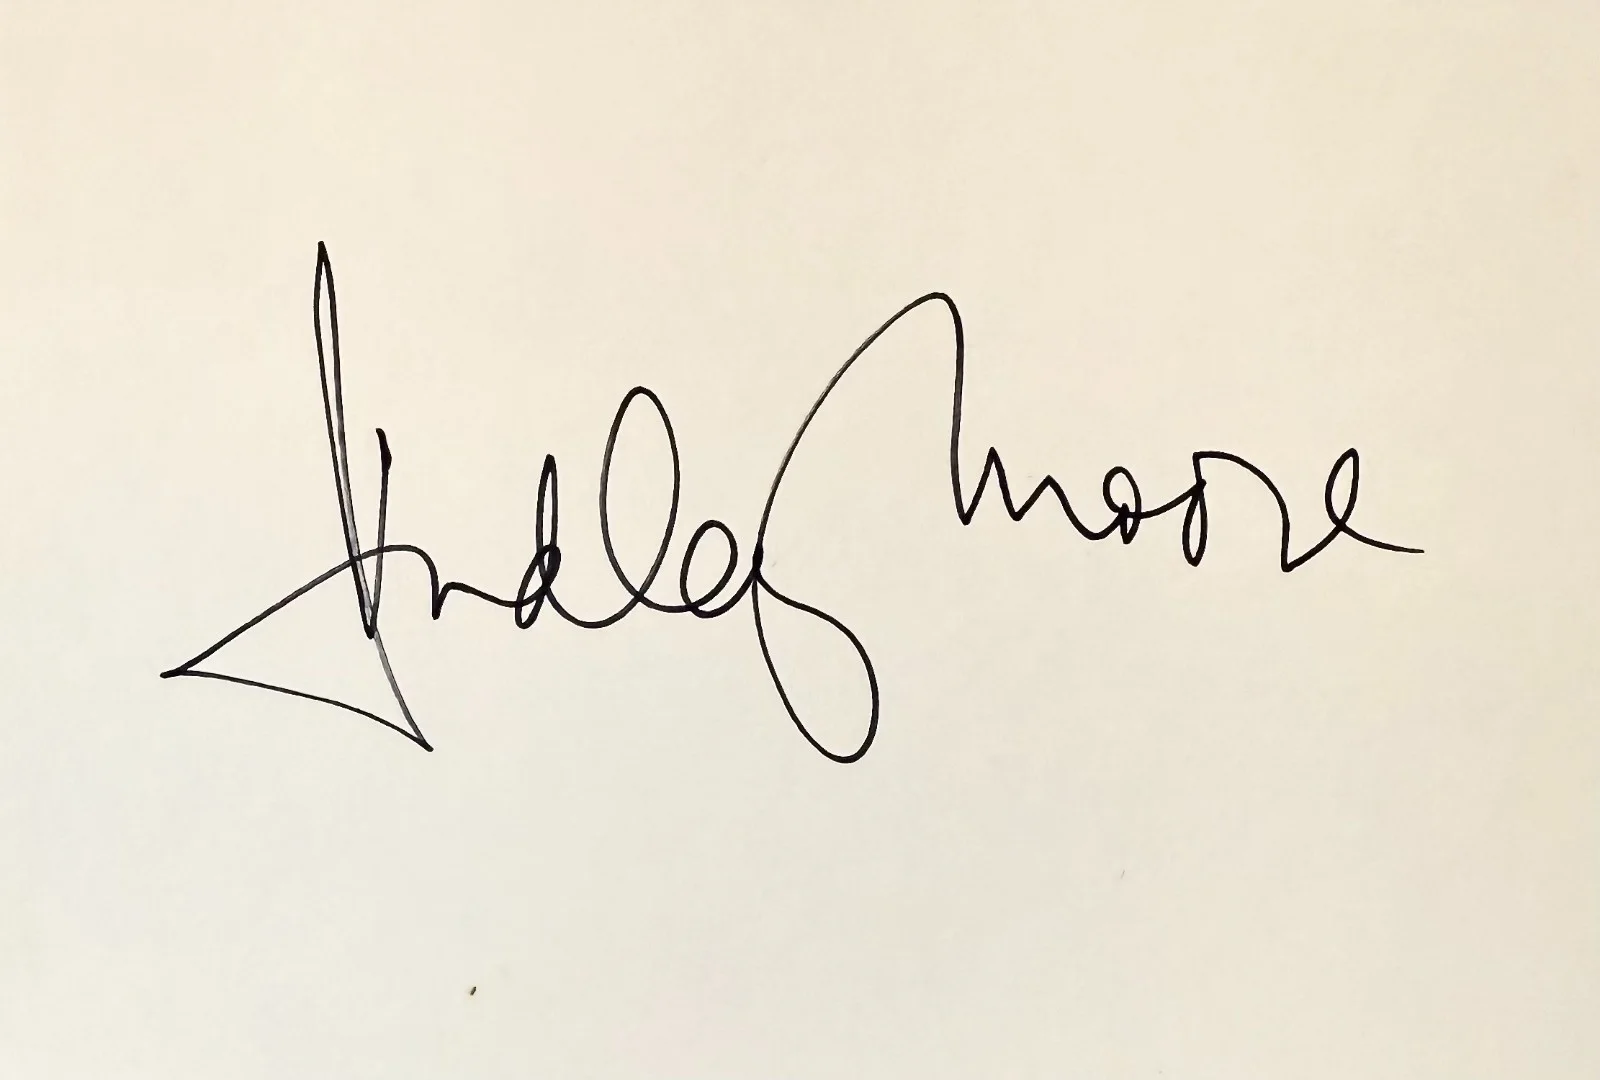 Dudley Moore